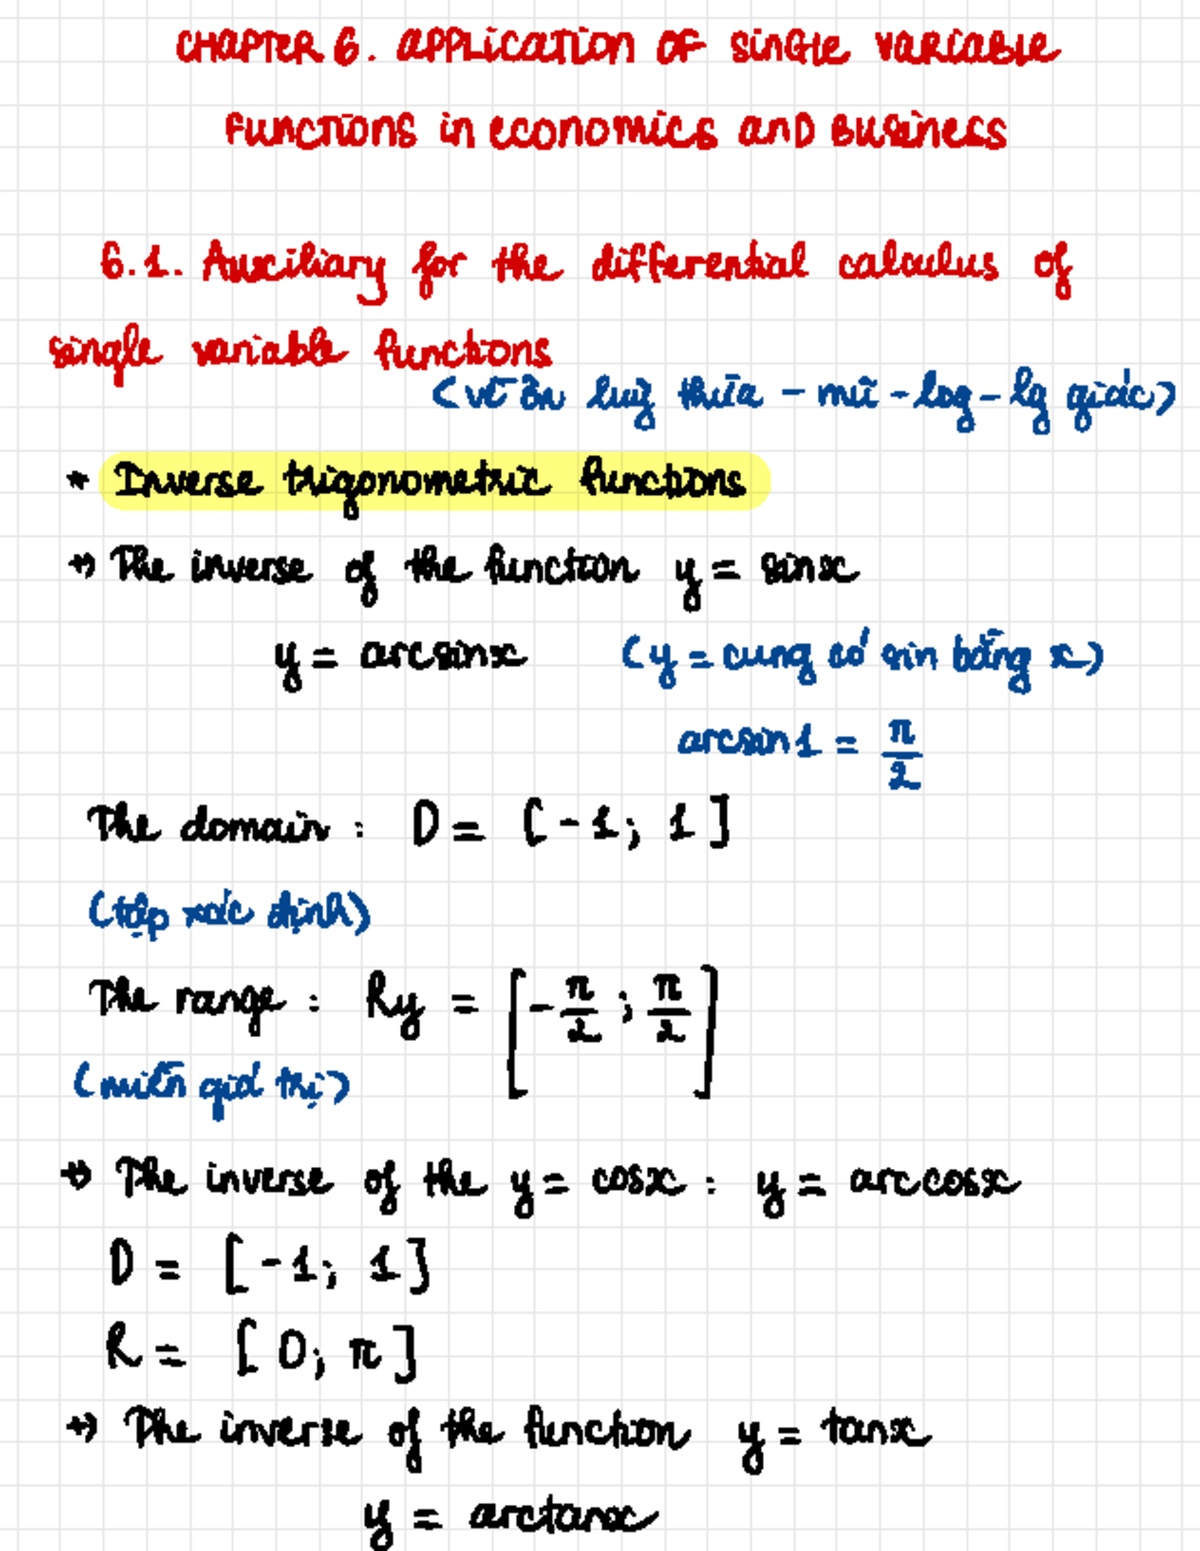 CHAPTER 6. APPLICATION OF SINGLE VARIABLE
FUNCTIONS IN ECONOMICS AND BUSINESS
6.1. Auxiliary for the differential calculus of
single variable functions
(về ôn luỹ thừa - mũ - log - lg giác)
* Inverse trigonometric functions
+) The inverse of the function y = sinx
y = arcsinx (y = cung có sin bằng x)
arcsin1 = π/2
The domain : D = [-1; 1]
(tập xác định)
The range : Ry = [-π/2 ; π/2]
(miền giá trị)
+) The inverse of the y = cosx : y = arccosx
D = [-1; 1]
R = [0; π]
+) The inverse of the function y = tanx
y = arctanx